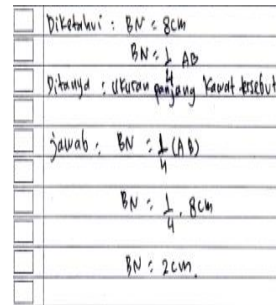 Diketahui : BN = 8cm
BN = 1/4 AB
Ditanya : Ukuran panjang kawat tersebut
jawab : BN = 1/4 (AB)
BN = 1/4 . 8cm
BN = 2cm.